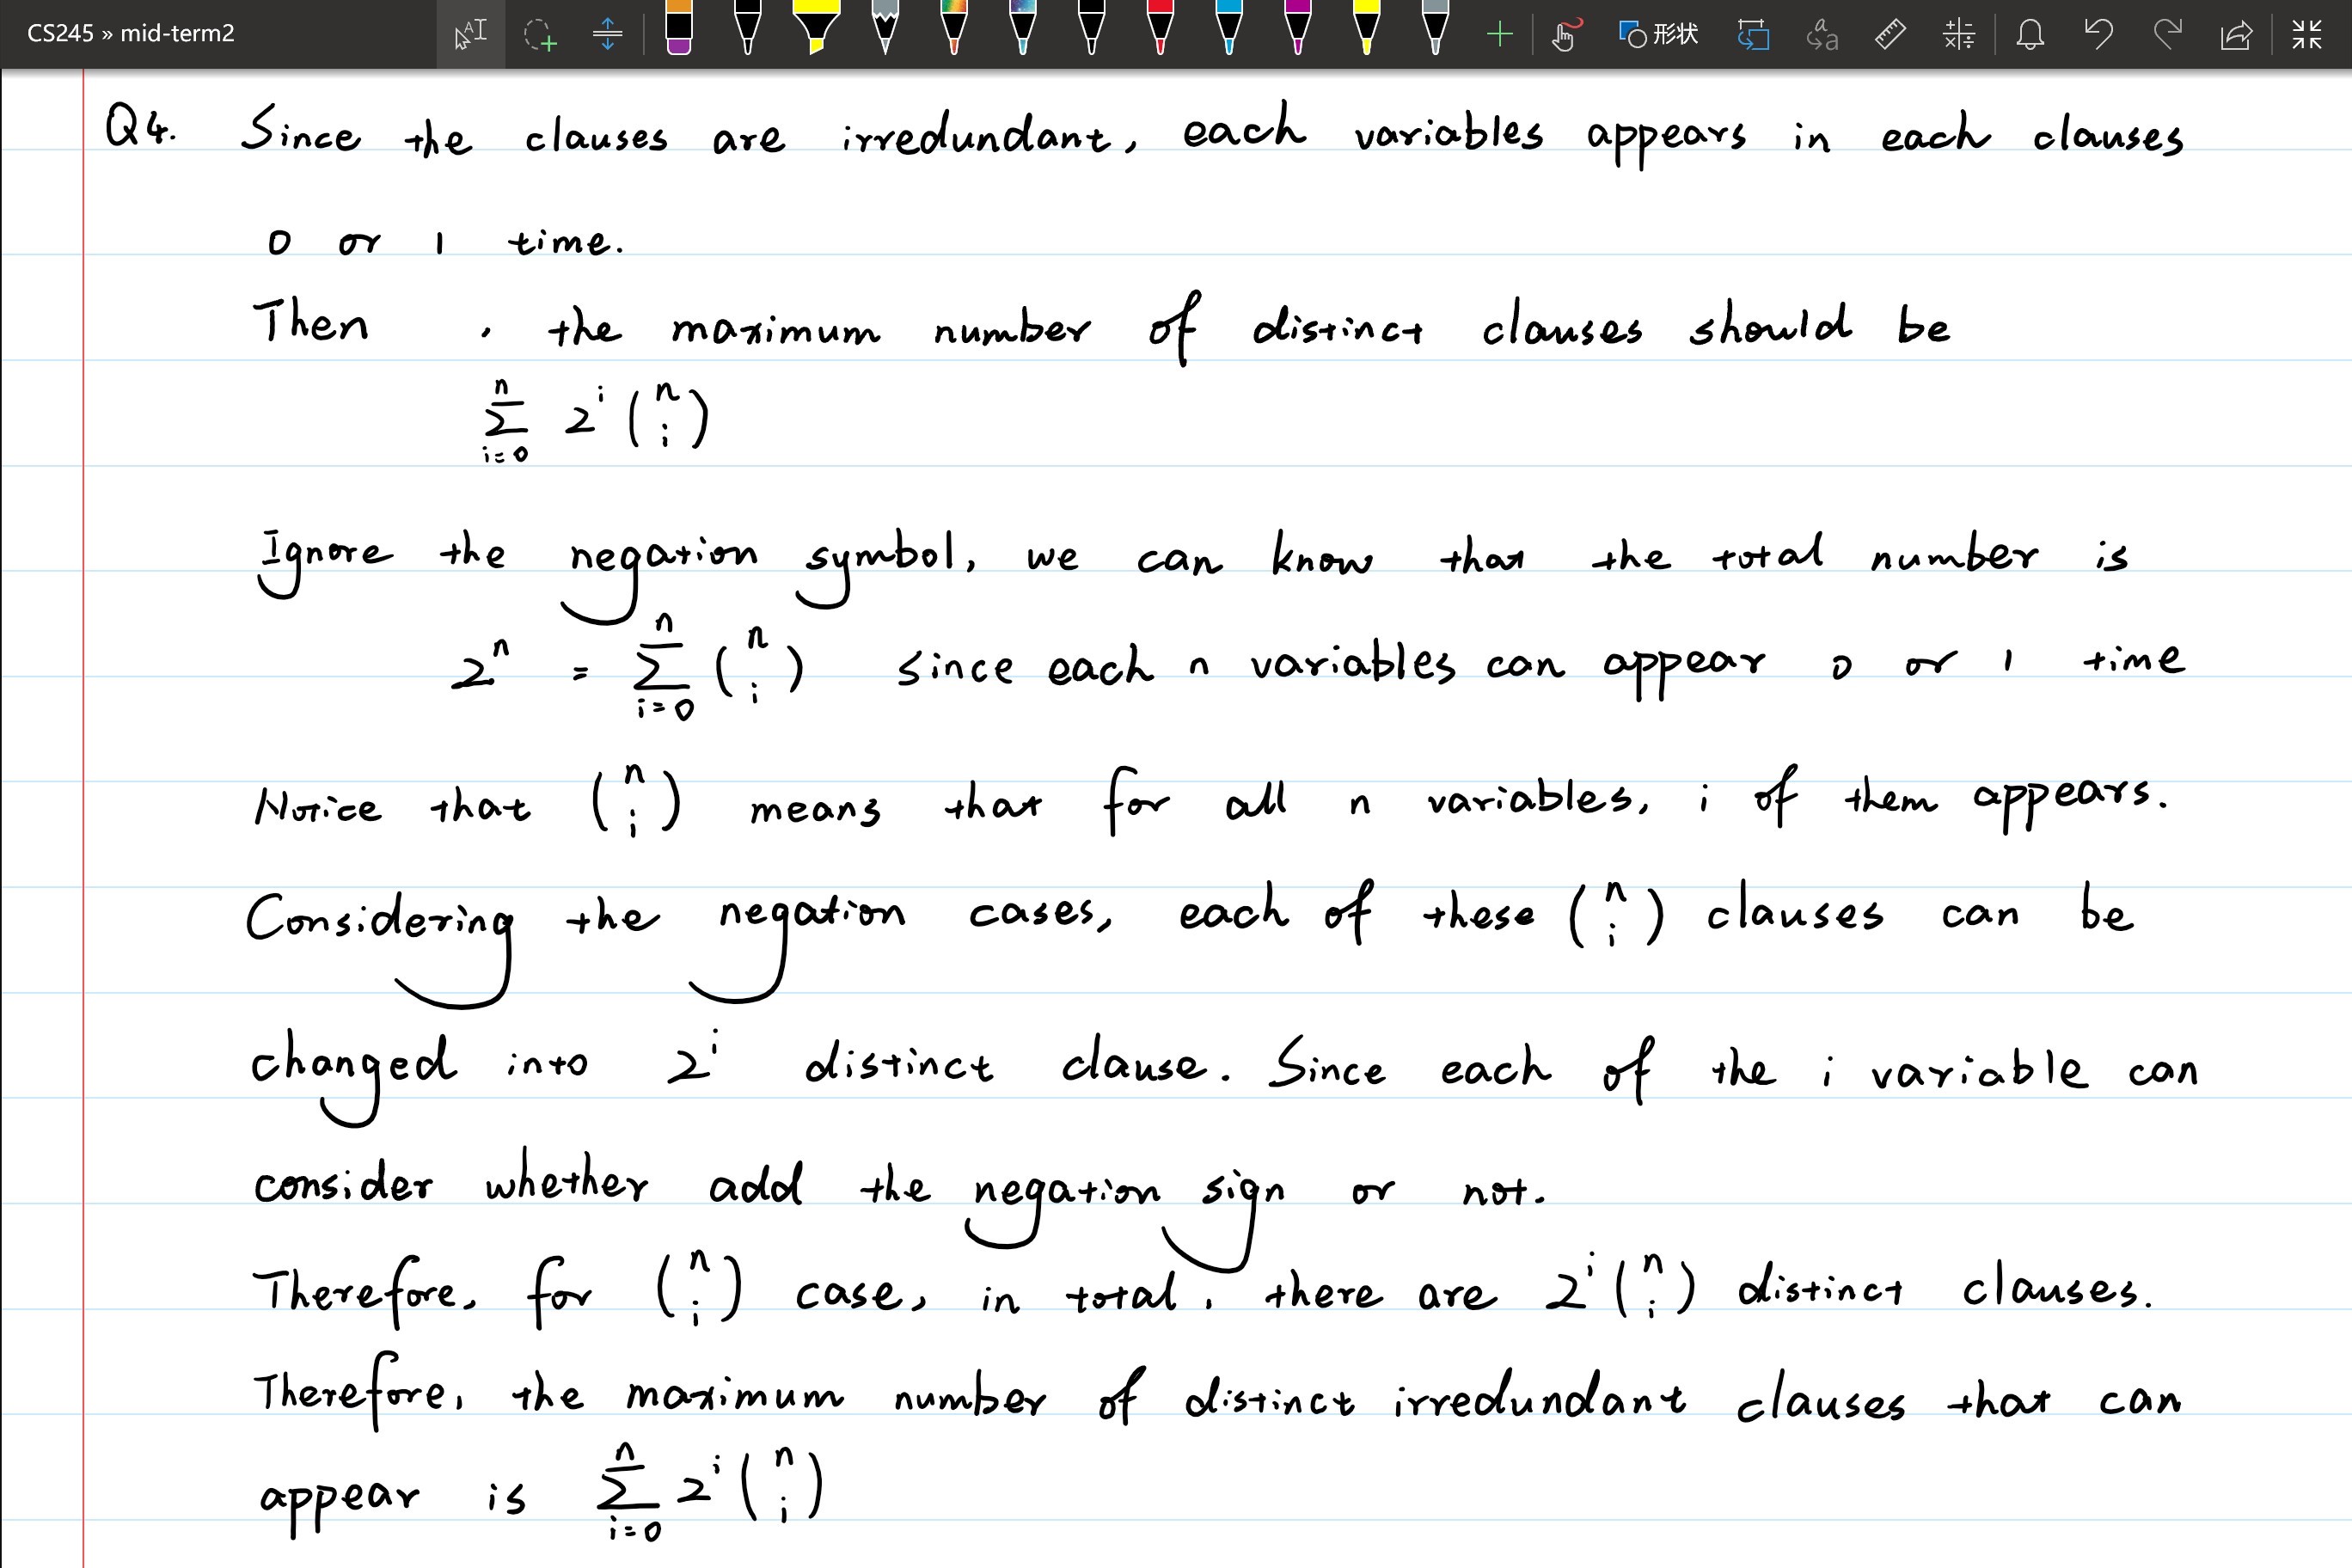 CS245 » mid-term2
形状
Q4. Since the clauses are irredundant, each variables appears in each clauses
0 or 1 time.
Then , the maximum number of distinct clauses should be
∑_{i=0}^{n} 2^i (n i)
Ignore the negation symbol, we can know that the total number is
2^n = ∑_{i=0}^{n} (n i) since each n variables can appear 0 or 1 time
Notice that (n i) means that for all n variables, i of them appears.
Considering the negation cases, each of these (n i) clauses can be
changed into 2^i distinct clause. Since each of the i variable can
consider whether add the negation sign or not.
Therefore, for (n i) case, in total, there are 2^i (n i) distinct clauses.
Therefore, the maximum number of distinct irredundant clauses that can
appear is ∑_{i=0}^{n} 2^i (n i)